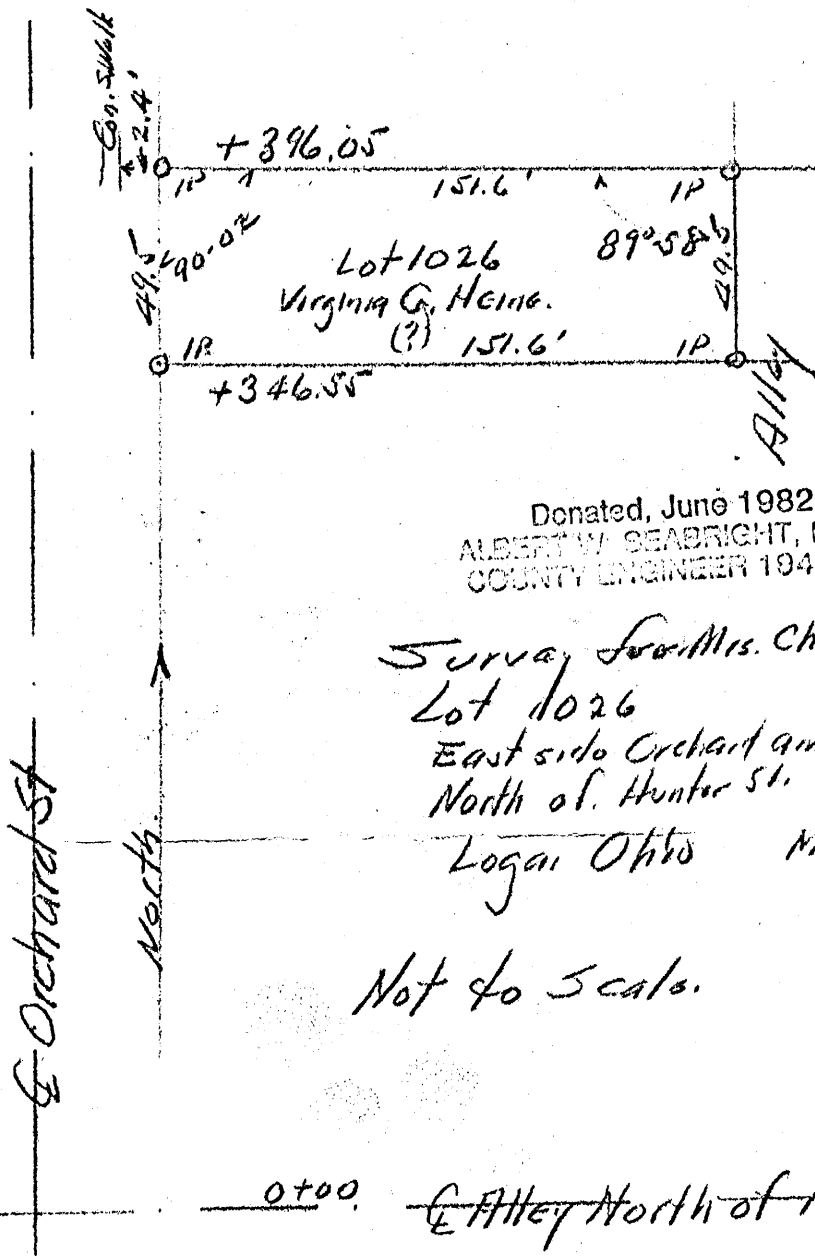 Con. S.Walk
2.4'
+396.05
IP 151.6' IP
90°-02'
89°-58'
49.5'
49.5'
Lot 1026
Virginia G. Heine.
(?)
IP 151.6' IP
+346.55
Alley
Donated, June 1982
ALBERT W. SEABRIGHT,
COUNTY ENGINEER 194
Survey for Mrs. Ch
Lot 1026
East side Orchard
North of. Hunter St.
Logan Ohio
North.
℄ Orchard St
Not to Scale.
0+00 ℄ Alley North of